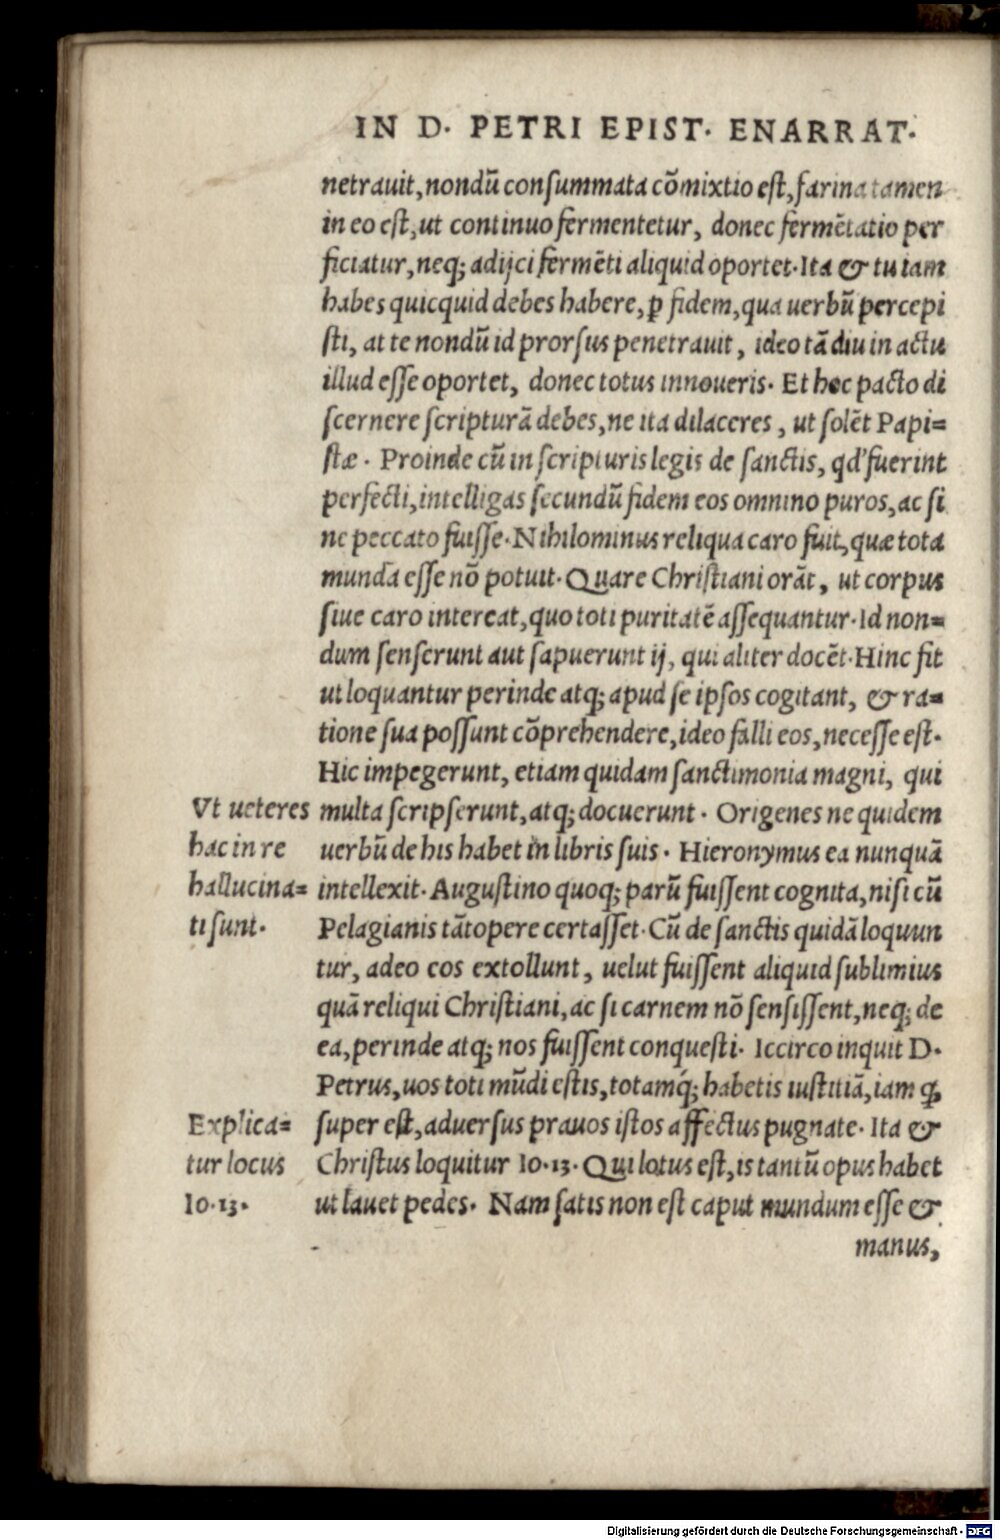 IN D. PETRI EPIST. ENARRAT.
netrauit, nondū consummata cōmixtio est, farina tamen
in eo est, ut continuo fermentetur, donec fermētatio per
ficiatur, neq; adijci fermēti aliquid oportet. Ita & tu iam
habes quicquid debes habere, ꝑ fidem, qua uerbū percepi
sti, at te nondū id prorsus penetrauit, ideo tā diu in actu
illud esse oportet, donec totus innoueris. Et hoc pacto di
scernere scripturā debes, ne ita dilaceres, ut solēt Papi=
stæ. Proinde cū in scripturis legis de sanctis, qd' fuerint
perfecti, intelligas secundū fidem eos omnino puros, ac si
ne peccato fuisse. Nihilominus reliqua caro fuit, quæ tota
munda esse nō potuit. Quare Christiani orāt, ut corpus
siue caro intereat, quo toti puritatē assequantur. Id non=
dum senserunt aut sapuerunt ij, qui aliter docēt. Hinc fit
ut loquantur perinde atq; apud se ipsos cogitant, & ra=
tione sua possunt cōprehendere, ideo falli eos, necesse est.
Hic impegerunt, etiam quidam sanctimonia magni, qui
Vt ueteres multa scripserunt, atq; docuerunt. Origenes ne quidem
hac in re uerbū de his habet in libris suis. Hieronymus ea nunquā
hallucina= intellexit. Augustino quoq; parū fuissent cognita, nisi cū
ti sunt. Pelagianis tātopere certasset. Cū de sanctis quidā loquun
tur, adeo eos extollunt, uelut fuissent aliquid sublimius
quā reliqui Christiani, ac si carnem nō sensissent, neq; de
ea, perinde atq; nos fuissent conquesti. Iccirco inquit D.
Petrus, uos toti mūdi estis, totamq́; habetis iustitiā, iam ꝙ
Explica= super est, aduersus prauos istos affectus pugnate. Ita &
tur locus Christus loquitur Io.13. Qui lotus est, is tantū opus habet
Io.13. ut lauet pedes. Nam satis non est caput mundum esse &
manus,
Digitalisierung gefördert durch die Deutsche Forschungsgemeinschaft - DFG